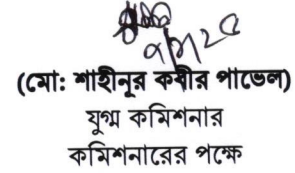 (মো: শাহীনূর কবীর পাভেল)
যুগ্ম কমিশনার
কমিশনারের পক্ষে